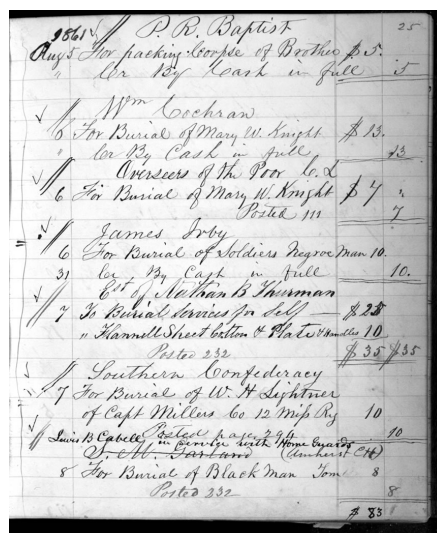 1861 P. R. Baptist 25
Aug 5 For packing Corpse of Brother $ 5.
" Cr By Cash in full 5
Wm Cochran
6 For Burial of Mary W. Knight $ 13.
" Cr By Cash in full 13
Overseers of the Poor C. L
6 For Burial of Mary W. Knight $ 7 "
Posted 111 7
James Irby
6 For Burial of Soldiers Negroe Man 10.
31 Cr. By Cash in full 10.
Est of Nathan B Thurman
7 To Burial Services for Self — $ 25
" Flannell Sheet Cotton & Plate & Handles 10
Posted 232 $ 35 $35
Southern Confederacy
7 For Burial of W. H Lightner
of Capt Millers Co 12 Miss Rg 10
Posted page 296 10
Lewis B Cabell in service with Home Guards
S. M. Garland (Amherst CH)
8 For Burial of Black Man Tom 8
Posted 232 8
$ 83